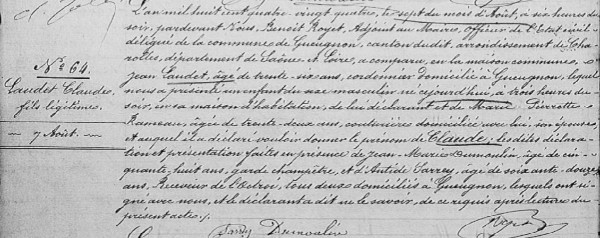 L'an mil huit cent quatre vingt quatre, le sept du mois d'Août, à six heures du
soir, pardevant Nous, Benoît Royet, Adjoint au Maire, Officier de l'Etat civil
délégué de la commune de Gueugnon, canton dudit, arrondissement de Cha-
rolles, département de Saône et Loire, a comparu, en la maison commune,
Jean Laudet, âgé de trente-six ans, cordonnier domicilié à Gueugnon, lequel
nous a présenté un enfant du sexe masculin né cejourd'hui, à trois heures du
soir, en sa maison d'habitation, de lui déclarant et de Marie Pierrette
Rameau, âgée de trente-deux ans, couturière domiciliée avec lui, son épouse,
et auquel il a déclaré vouloir donner le prénom de Claude; les dites déclara-
tion et présentation faites en présence de Jean-Marie Dumoulin, âgé de cin-
quante huit ans, garde champêtre, et d'Antide Sarrey, âgé de soixante-douze
ans, Receveur de l'Octroi, tous deux domiciliés à Gueugnon, lesquels ont si-
gné avec nous, et le déclarant a dit ne le savoir, de ce requis après lecture du
présent acte./.
Nº 64.
Laudet Claude,
fils légitime.
7 Août.
Sarrey Dumoulin